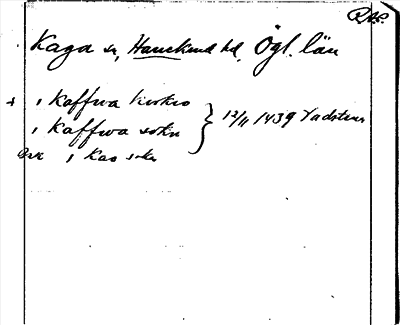 RAP.
Kaga sn, Hanekind hd, Ögl. län
+ i Kaffwa kirkio
i Kaffwa sokn } 12/11 1439 Vadstena
i Kao sokn